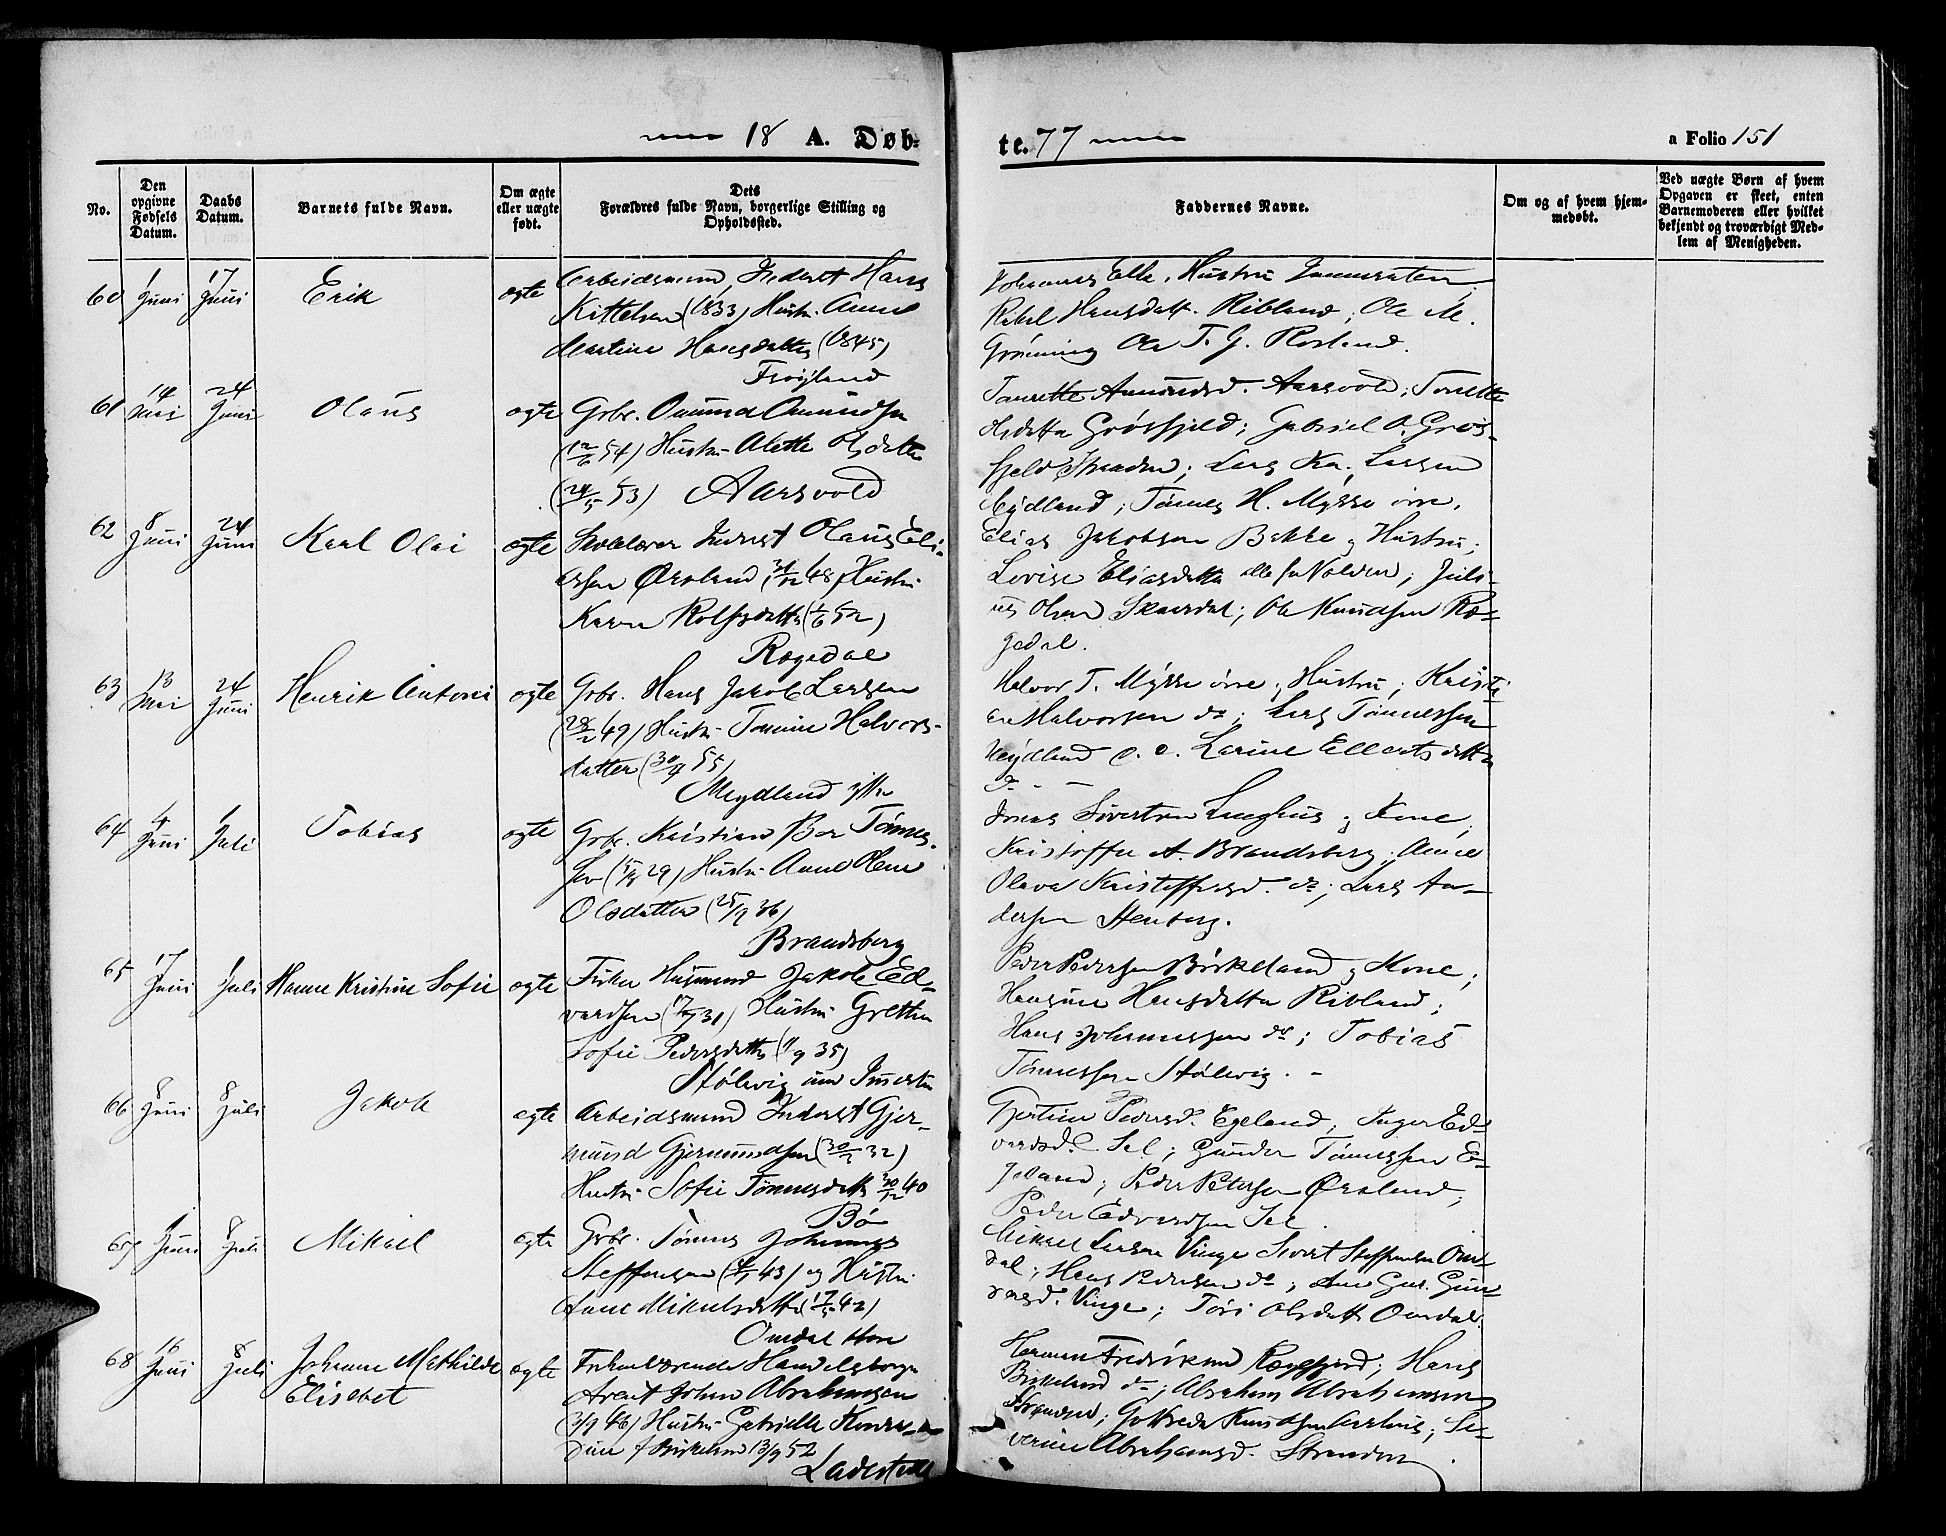 18 A. Døb-
te. 77
a Folio 151
No.
Den opgivne Fødsels Datum.
Daabs Datum.
Barnets fulde Navn.
Om ægte eller uægte født.
Dets Forældres fulde Navn, borgerlige Stilling og Opholdssted.
Faddernes Navne.
Om og af hvem hjemmedøbt.
Ved uægte Børn af hvem Opgaven er skeet, enten Barnemoderen eller hvilket bekjendt og troværdigt Medlem af Menigheden.
60 1 Juni 17 Juni Erik ægte Arbeidsmand, Inderst Hans
Kittelsen (1833) Hustr. Anne
Martine Hansdatter (1845)
Frøyland
Johannes Hustru
Rakel Hansdatt. Ribland; Ole M.
Grønning Ole T. G. Rosland.
61 14 Mai 24 Juni Olaus ægte Grbr. Omund Omundsen
(12/6 54) Hustr. Alette Olsdatter
(24/5 53) Aarsvold
Taurette Amundsd. Aarsvold; Tonette
Olsdatter Grøsfjeld; Gabriel O. Grøs-
fjeld Stranden; Lars Ka. Larsen
Mydland; Tønnes H. Mysse øvre.
62 8 Juni 24 Juni Karl Olai ægte Skolelærer Inderst Olaus Eli-
assen Ørsland (31/12 48) Hustr.
Karen Rolfsdatter (1/6 52)
Rægedal
Elias Jakobsen Bakke og Hustru;
Lovise Eliasdatter alle fra Nolden; Juli-
us Olsen Skaardal; Ole Knudsen Ræ-
gedal.
63 13 Mai 24 Juni Henrik Antoni ægte Grbr. Hans Jakob Larsen
(28/2 49) Hustr. Tomine Halvors-
datter (30/9 55)
Mydland ytre
Halvor T. Mysse øvre, Hustru; Kristi-
an Halvorsen do; Lars Tønnessen
Mydland Larine Ellertsdatter
do -
64 4 Juni 1 Juli Tobias ægte Grbr. Kristian Ber Tønnes-
sen 29) Hustr. Anne Olene
Olsdatter (25/9 36)
Brandsberg
Jonas Sivertsen og Kone,
Kristoffer A. Brandsberg; Anne
Olava Kristoffersd. do; Lars An-
dersen Stenberg.
65 17 Juni 1 Juli Hanne Kristine Sofie ægte Fisker Husmand Jakob Ed-
vardsen 31) Hustr. Grethe
Sofie Pedersdatter 35)
Stølevig
Peder Pedersen Birkeland og Kone;
Hansine Hansdatter Ribland;
Hans Johannessen do; Tobias
Tønnessen Stølevig. -
66 8 Juni 8 Juli Jakob ægte Arbeidsmand Inderst Gjer-
mund Gjermundsen 32)
Hustr. Sofie Tønnesdatt. 40
Bø
Gjertine Pedersd. Egeland, Inger Ed-
vardsd. Sel; Gunder Tønnessen E-
geland; Peder Petersen Ørsland;
Peder Edvardsen Sel.
67 1 Juni 8 Juli Mikael ægte Grbr. Tønnes Johannes
Steffensen 43) og Hustr.
Anne Mikelsdatter 42)
Omdal
Mikael Larsen Vinge Sivert Steffensen Om-
dal; Hans Pedersen do; Ane Gur. Gun-
Vinge; Tori Olsdatt. Omdal.
68 16 Juni 8 Juli Johanne Mathilde
Elisebet ægte Handelsborger
Arent Johan Abrahamsen
(3/9 46) Hustr. Gabrielle
f Birkeland 13/9 52
Ladested
Herman Fredriksen Rægefjord; Hans
Birkeland do; Abraham Abrahamsen
Stranden; Gotfreda Knudsen; Se-
verine Abrahamsd. Stranden